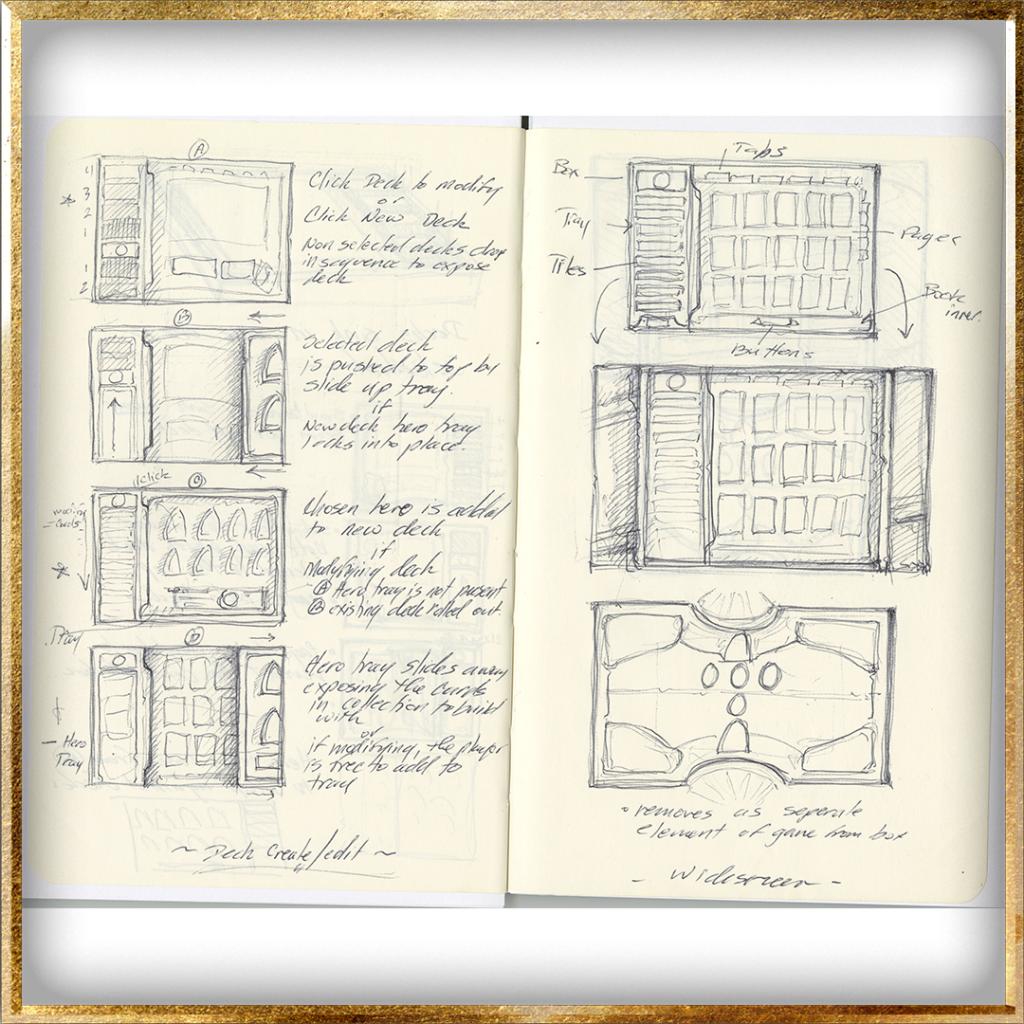 A
4
3
2
1
1
2
Click Deck to modify
or
Click New Deck
Non selected decks drop
in sequence to expose
deck
B
Selected deck
is pushed to top by
slide up tray.
if
New deck hero tray
locks into place.
Click
Chosen hero is added
to new deck
if
Modifying deck
Hero tray is not present
existing deck rolled out.
Tray
D
Hero tray slides away
exposing the cards
in collection to build
with
or
if modifying, the player
is free to add to
tray
- Hero
Tray
~ Deck Create/edit ~
Tabs
Box
Tray
Tiles
Pages
Book
inner.
Buttons
removes as seperate
element of game from box
- Widescreen -